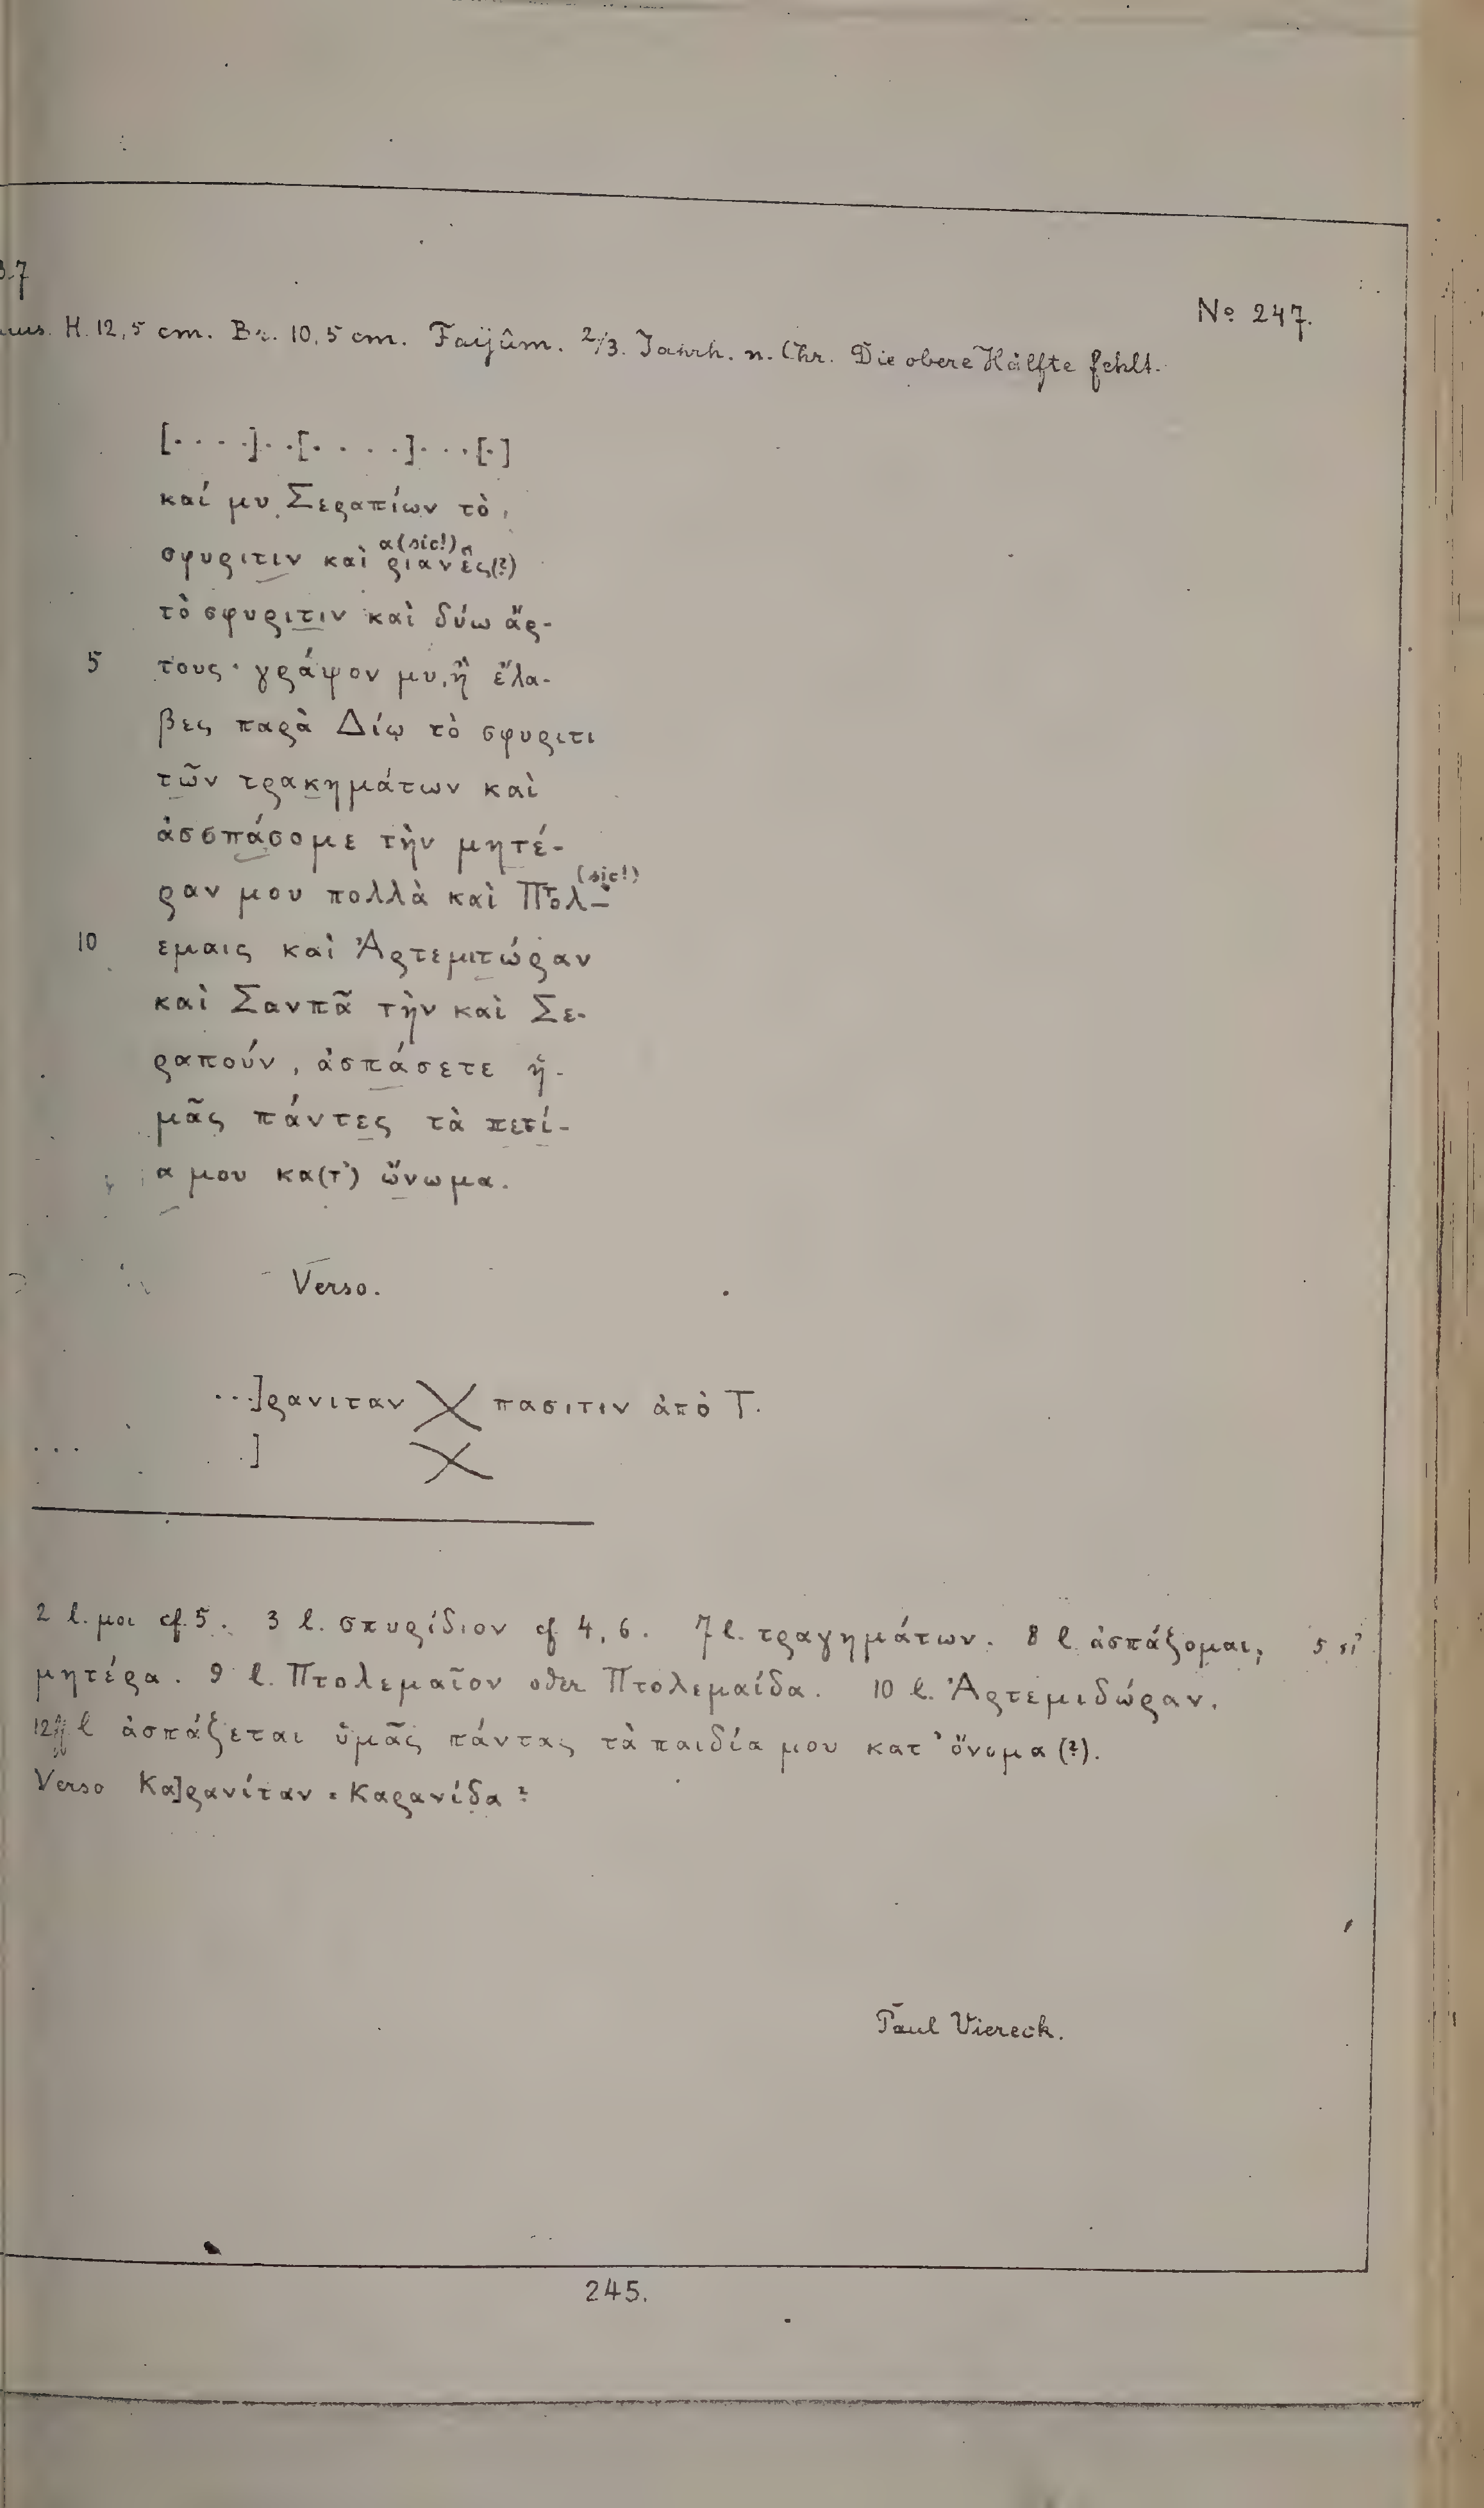 No 247.
H. 12,5 cm. Br. 10,5 cm. Faijûm. 2/3. Jahrh. n. Chr. Die obere Hälfte fehlt.
[. . . .]. . [. . . . .]. . . [.]
καί μυ Σεραπίων τὸ
α(sic!)
σφυριτιν καὶ ριανὲς(?)
τὸ σφυριτιν καὶ δύω ἄρ-
5 τους· γράψον μυ, ἢ ἔλα-
βες παρὰ Δίῳ τὸ σφυριτι
τῶν τρακημάτων καὶ
ἀσσπάσομε τὴν μητέ-
(sic!)
ραν μου πολλὰ καὶ Πτολ-
10 εμαις καὶ Ἀρτεμιτώραν
καὶ Σανπᾶ τὴν καὶ Σε-
ραπούν, ἀσπάσετε ἡ-
μᾶς πάντες τὰ πετί-
α μου κα(τ') ὤνωμα.
Verso.
...]ρανιταν ╳ πασιτιν ἀπὸ Τ.
... .] ╳
2 l. μοι cf. 5. 3 l. σπυρίδιον cf 4, 6. 7 l. τραγημάτων. 8 l. ἀσπάζομαι, 5 εἰ
μητέρα. 9 l. Πτολεμαῖον oder Πτολεμαίδα. 10 l. Ἀρτεμιδώραν.
12ff l ἀσπάζεται ὑμᾶς πάντας τὰ παιδία μου κατ' ὄνομα (?).
Verso Κα]ρανίταν = Καρανίδα?
Paul Viereck.
245.